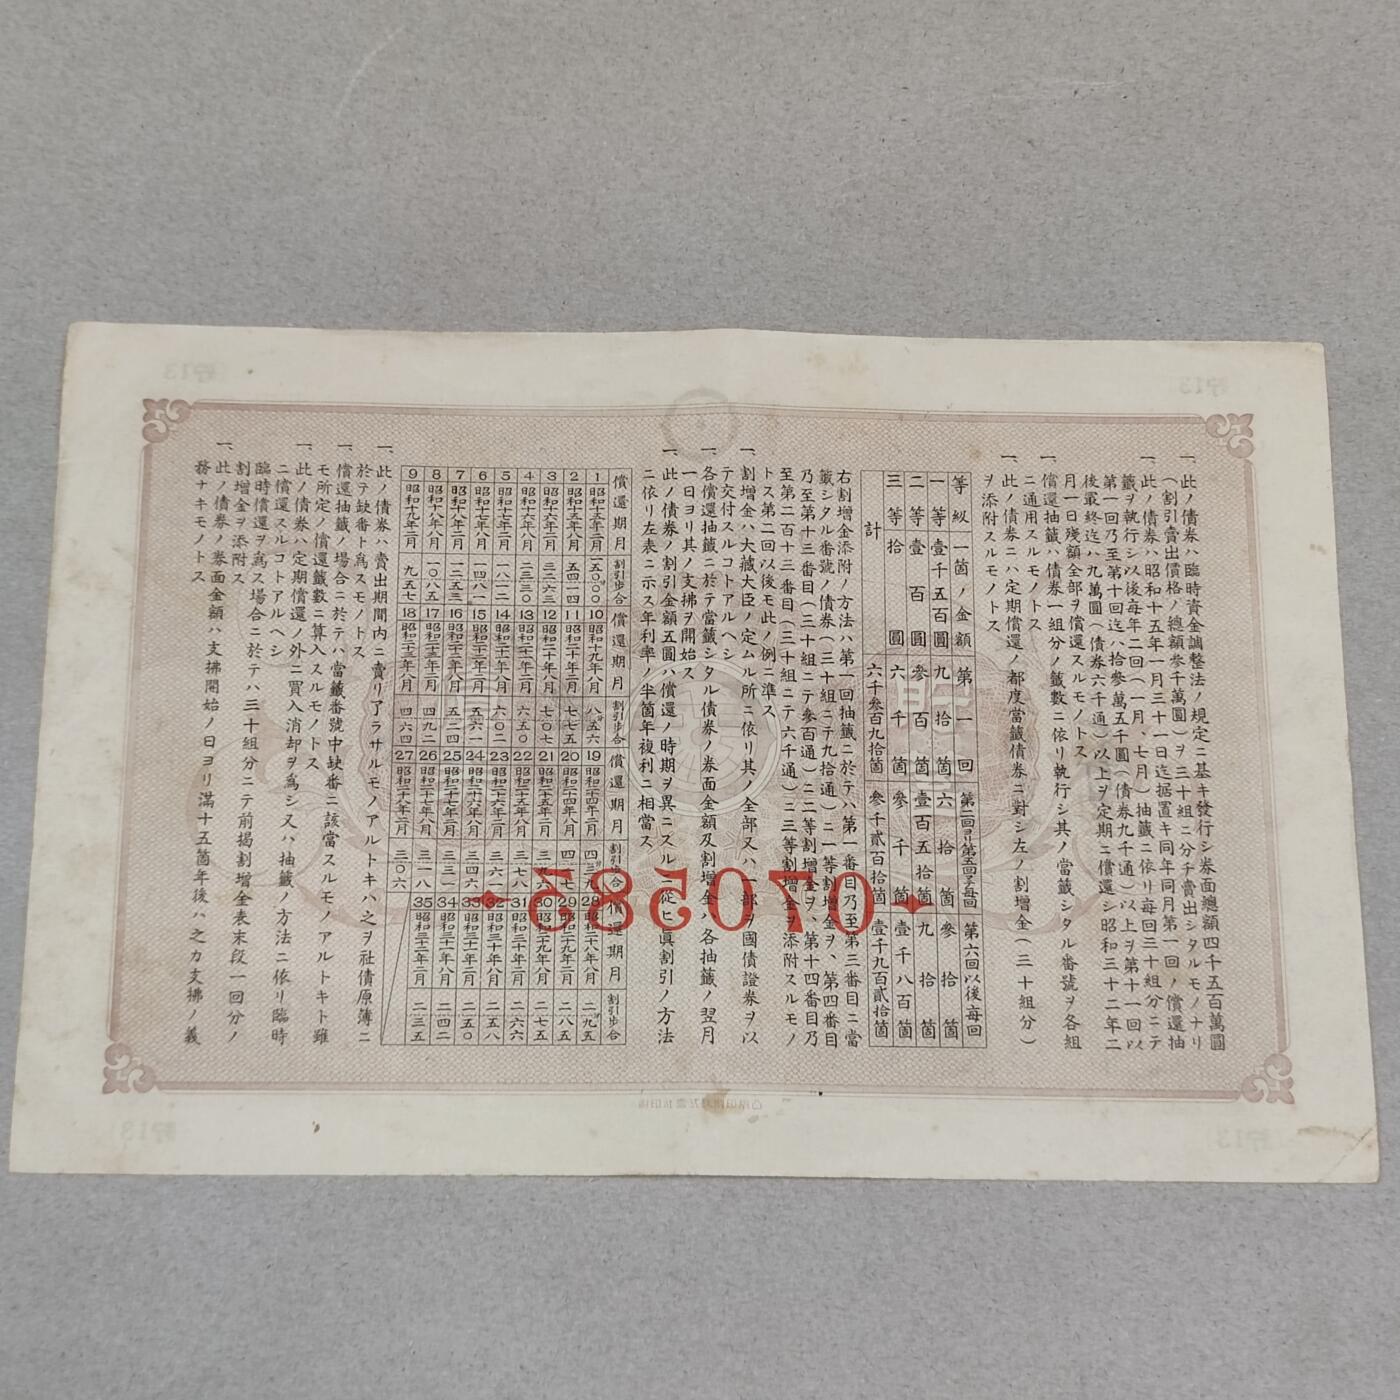 一、此ノ債券ハ臨時資金調整法ノ規定ニ基キ發行シ券面總額四千五百萬圓
(割引賣出價格ノ總額參千萬圓)ヲ三十組ニ分チ賣出シタルモノナリ
一、此ノ債券ハ昭和十五年一月三十一日迄据置キ同年同月第一回ノ償還抽
籤ヲ執行シ以後每年二回(一月、七月)抽籤ニ依リ每回三十組分ニテ
第一回乃至第十回迄ハ拾參萬五千圓(債券九千通)以上ヲ第十一回以
後最終迄ハ九萬圓(債券六千通)以上ヲ定期ニ償還シ昭和三十二年二
月一日殘額全部ヲ償還スルモノトス
一、償還抽籤ハ債券一組分ノ籤數ニ依リ執行シ其ノ當籤シタル番號ヲ各組
ニ通用スルモノトス
一、此ノ債券ニハ定期償還ノ都度當籤債券ニ對シ左ノ割增金(三十組分)
ヲ添附スルモノトス
等級 一箇ノ金額 第一回 第二回ヨリ第五回迄每回 第六回以後每回
一等 壹千五百圓 九拾箇 六拾箇 參拾箇
二等 壹百圓 參百箇 壹百五拾箇 九拾箇
三等 拾圓 六千箇 參千箇 壹千八百箇
計 六千參百九拾箇 參千貳百拾箇 壹千九百貳拾箇
右割增金添附ノ方法ハ第一回抽籤ニ於テハ第一番目乃至第三番目ニ當
籤シタル番號ノ債券(三十組ニテ九拾通)ニ一等割增金ヲ、第四番目
乃至第十三番目(三十組ニテ參百通)ニ二等割增金ヲ、第十四番目乃
至第二百十三番目(三十組ニテ六千通)ニ三等割增金ヲ添附スルモノ
トス第二回以後モ此ノ例ニ準ス
一、割增金ハ大藏大臣ノ定ムル所ニ依リ其ノ全部又ハ一部ヲ國債證券ヲ以
テ交付スルコトアルヘシ
一、各償還抽籤ニ於テ當籤シタル債券ノ券面金額及割增金ハ各抽籤ノ翌月
一日ヨリ其ノ支拂ヲ開始ス
一、此ノ債券ノ割引金額五圓ハ償還ノ時期ヲ異ニスルニ從ヒ眞割引ノ方法
ニ依リ左表ニ示ス年利率ノ半箇年複利ニ相當ス
償還期月 割引步合 償還期月 割引步合 償還期月 割引步合 償還期月 割引步合
1 昭和十五年二月 一五〇.〇〇 10 昭和十九年八月 八.五六 19 昭和二十四年二月 四.三九 28 昭和二十八年八月 二.九五
2 昭和十五年八月 五四.四 11 昭和二十年二月 七.七五 20 昭和二十四年八月 四.一七 29 昭和二十九年二月 二.八五
3 昭和十六年二月 三二.六三 12 昭和二十年八月 七.〇七 21 昭和二十五年二月 三.九六 30 昭和二十九年八月 二.七五
4 昭和十六年八月 二三.三〇 13 昭和二十一年二月 六.五〇 22 昭和二十五年八月 三.七八 31 昭和三十年二月 二.六六
5 昭和十七年二月 一八.一二 14 昭和二十一年八月 六.〇二 23 昭和二十六年二月 三.六一 32 昭和三十年八月 二.五八
6 昭和十七年八月 一四.八一 15 昭和二十二年二月 五.六一 24 昭和二十六年八月 三.四六 33 昭和三十一年二月 二.五〇
7 昭和十八年二月 一二.五三 16 昭和二十二年八月 五.二四 25 昭和二十七年二月 三.三一 34 昭和三十一年八月 二.四二
8 昭和十八年八月 一〇.八五 17 昭和二十三年二月 四.九二 26 昭和二十七年八月 三.一八 35 昭和三十二年二月 二.三五
9 昭和十九年二月 九.五七 18 昭和二十三年八月 四.六四 27 昭和二十八年二月 三.〇六
一、此ノ債券ハ賣出期間內ニ賣リアラサルモノアルトキハ之ヲ社債原簿ニ
於テ缺番ト爲スモノトス
一、償還抽籤ノ場合ニ於テハ當籤番號中缺番ニ該當スルモノアルトキト雖
モ所定ノ償還籤數ニ算入スルモノトス
一、此ノ債券ハ定期償還ノ外ニ買入消却ヲ爲シ又ハ抽籤ノ方法ニ依リ臨時
ニ償還スルコトアルヘシ
臨時償還ヲ爲ス場合ニ於テハ三十組分ニテ前揭割增金表末段一回分ノ
割增金ヲ添附ス
一、此ノ債券ノ券面金額ハ支拂開始ノ日ヨリ滿十五箇年後ハ之カ支拂ノ義
務ナキモノトス
070585